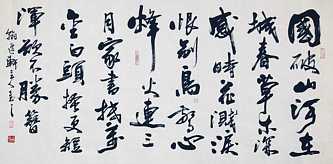 國破山河在
城春草木深
感時花濺淚
恨別鳥驚心
烽火連三
月家書抵萬
金白頭搔更短
渾欲不勝簪